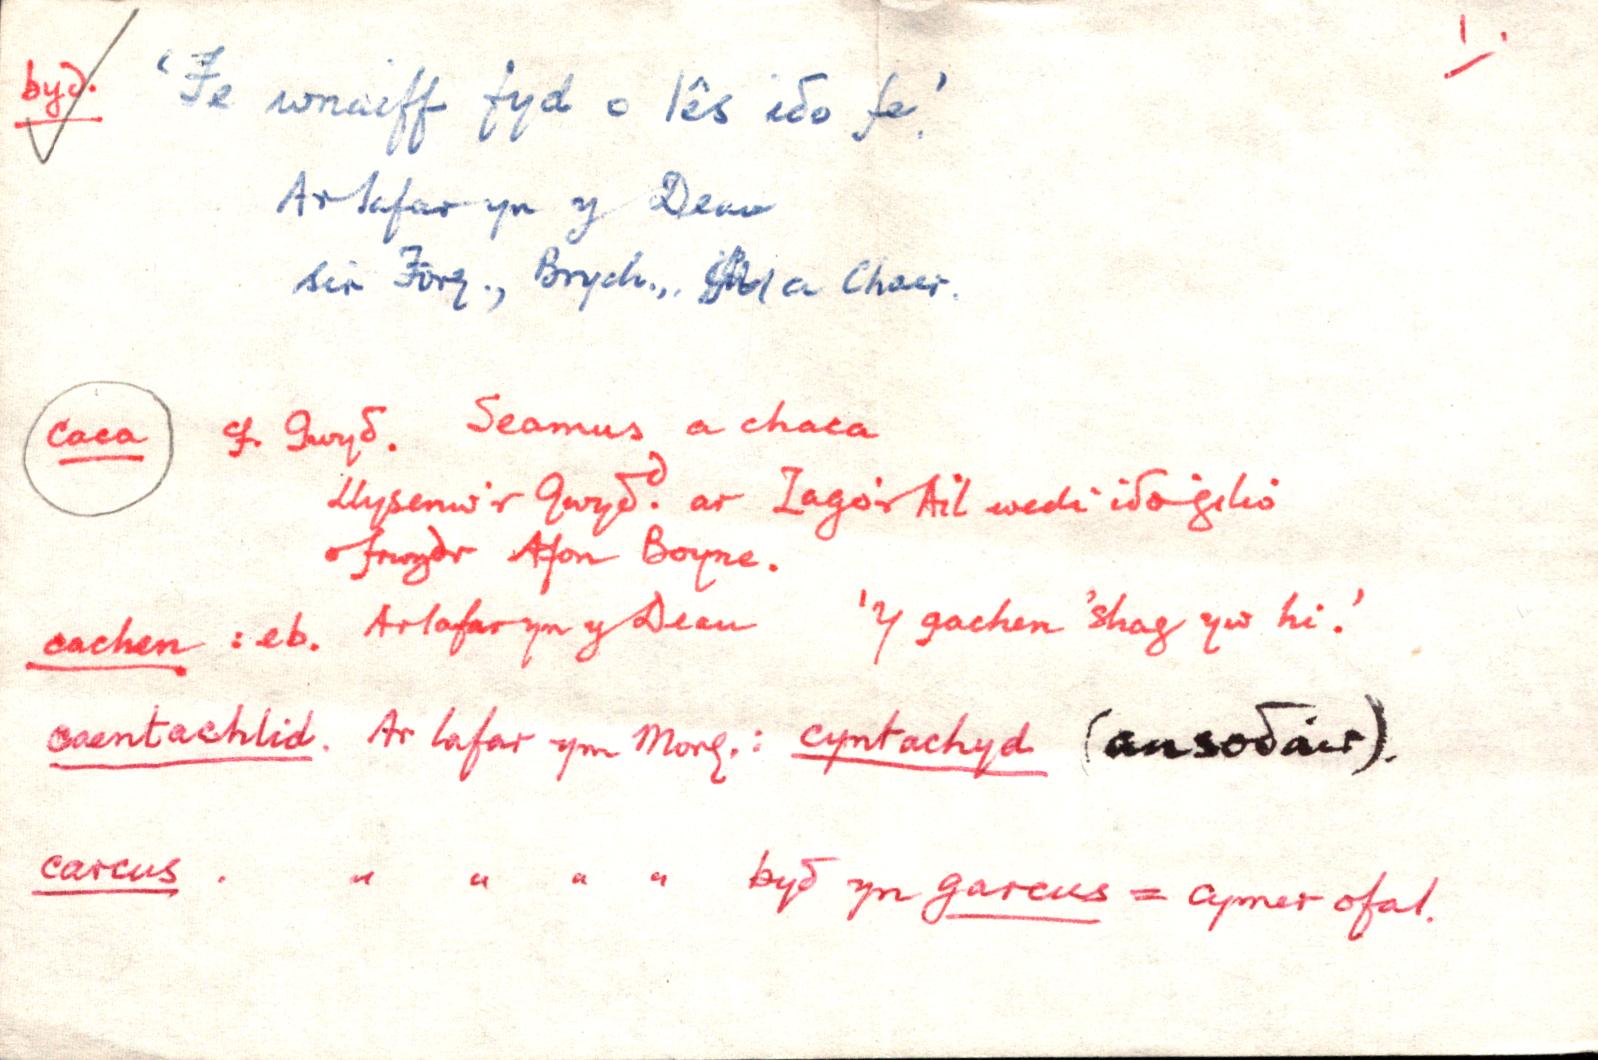 1.
byd. 'Fe wnaiff fyd o lês iðo fe.'
Ar lafar yn y Deau
Sir Forg., Brych., a Chaer.
caca cf. Gwyð. Seamus a chaca
Llysenw'r Gwyð. ar Iago'r Ail wedi iðo gilio
o frwydr Afon Boyne.
cachen : eb. Ar lafar yn y Deau 'Y gachen 'shag yw hi.'
caentachlid. Ar lafar ym Morg.: cyntachyd (ansoðair).
carcus . " " " " byð yn garcus = cymer ofal.